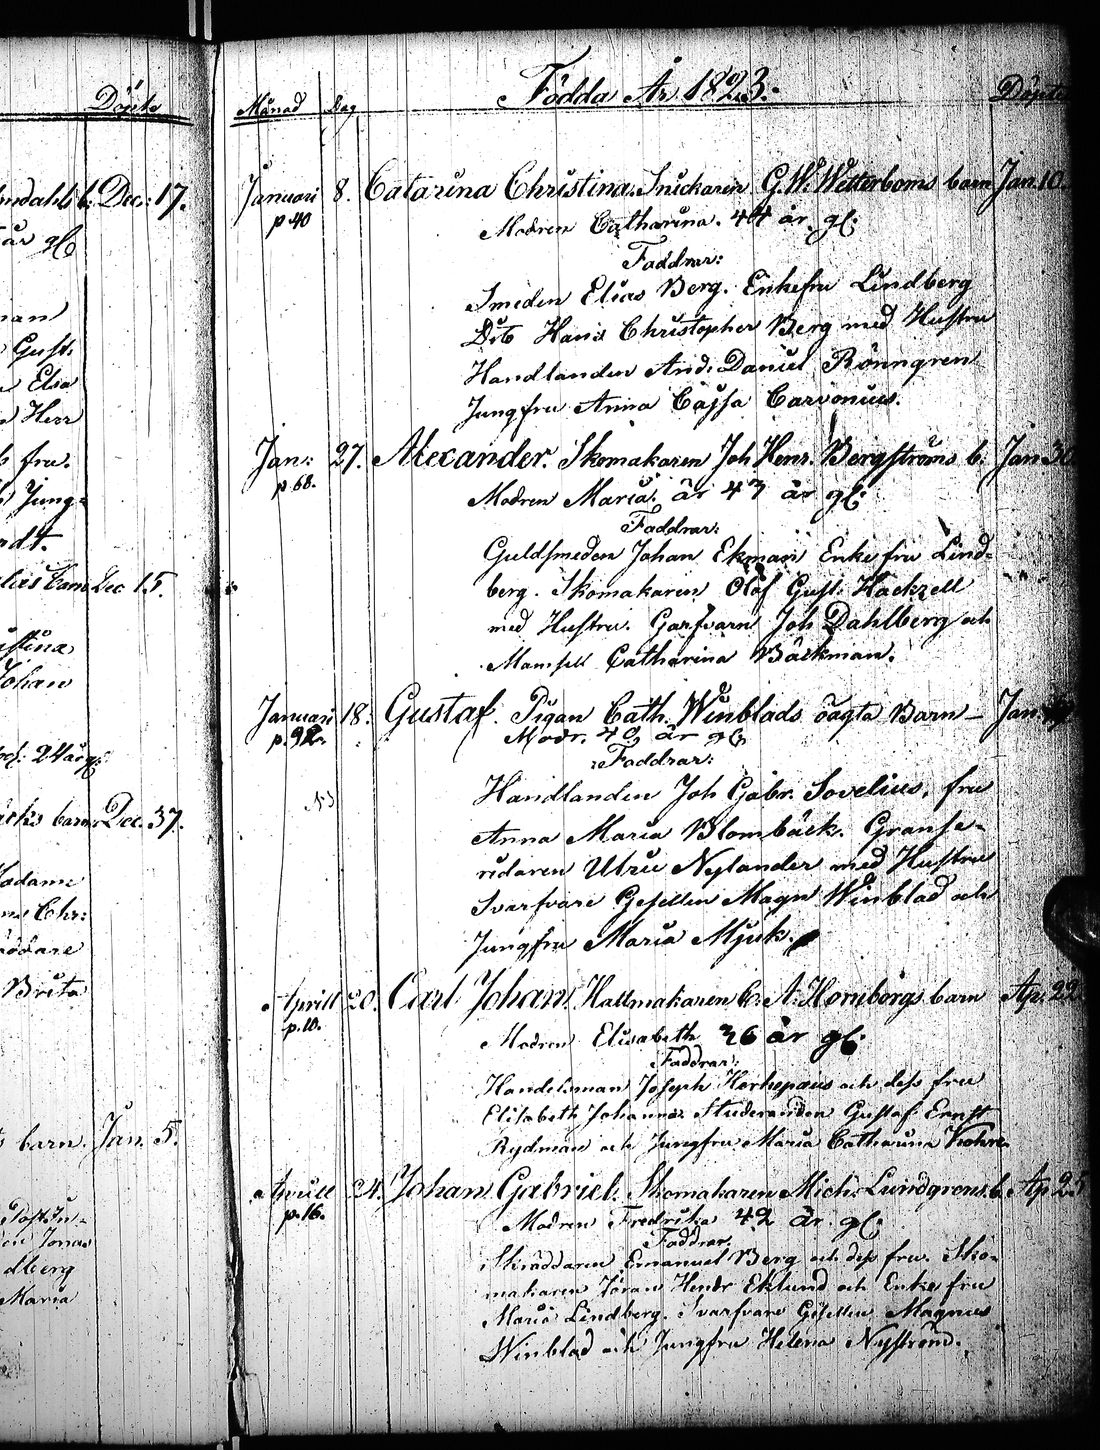 Döpte
ndahls b. Dec: 17.
är gl
man
Gust.
Elsa
Herr
fru.
Jung-
rdt.
barn Dec 15.
istina
Johan
24 år gl:
barn Dec. 37.
Madame
Chr:
Brita
barn. Jan. 5.
Jonas
dberg
Maria
Födda År 1823.
Månad Dag Döpte
Januari 8. Catarina Christina. Snickaren G. W. Wetterboms barn Jan. 10.
p. 40 Modren Catharina. 44 år. gl:
Faddrar:
Smeden Elias Berg. Enkefru Lindberg
Dito Hans Christopher Berg med Hustru
Handlanden And. Daniel Rönngren
Jungfru Anna Cajsa Carvonius.
Jan: 27. Alexander. Skomakaren Joh Henr. Bergströms b. Jan 30
p 68. Modren Maria. är 43 år gl:
Faddrar:
Guldsmeden Johan Ekman Enke fru Lind-
berg. Skomakaren Olof Gust. Hackzell
med Hustru. Garfvarn Joh Dahlberg och
Mamsell Catharina Bäckman.
Januari 18. Gustaf. Pigan Cath. Winblads oägta Barn – Jan.
p. 92. Modr. 40 år gl
Faddrar:
Handlanden Joh Gabr. Sovelius, fru
Anna Maria Blombäck. Gränse-
ridaren Utrie Nylander med Hustru
Svarfvare Gesellen Magn Winblad och
Jungfru Maria Mjuk.
Aprill 20. Carl Johan. Hattmakaren C. A. Hornborgs barn Ap. 22
p. 10. Modren Elisabeth 36 år gl:
Faddrar:
Handelsman Joseph Herkepaus och dess fru
Elisabeth Johanna. Studeranden Gustaf Ernst
Rydman och Jungfru Maria Catharina
Aprill 24. Johan Gabriel. Skomakaren Mich. Lundgrens b. Ap. 25
p. 16. Modren Fredrika 42 år. gl:
Faddrar.
Skräddaren Emanuel Berg och dess fru. Sko-
makaren Jöran Hendr Eklund och Enke fru
Maria Lindberg. Svarfvare Gesellen Magnus
Winblad och Jungfru Helena Nyström.